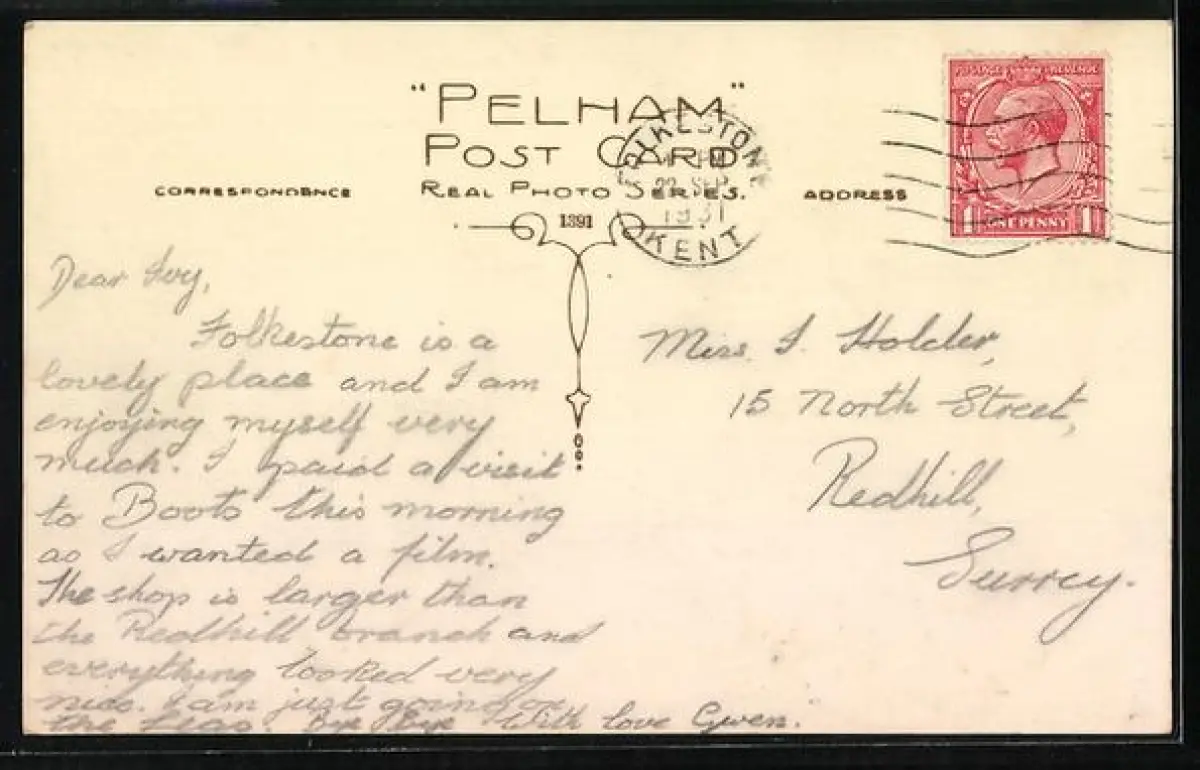 "PELHAM"
POST CARD
REAL PHOTO SERIES.
CORRESPONDENCE
ADDRESS
1391
FOLKESTONE
PM
22 SEP
1931
KENT
POSTAGE REVENUE
1 ONE PENNY 1
Dear Ivy,
Folkestone is a
lovely place and I am
enjoying myself very
much. I paid a visit
to Boots this morning
as I wanted a film.
The shop is larger than
the Redhill branch and
everything looked very
nice. I am just going on
the Leas. Bye Bye With love Gwen.
Miss. I. Holder,
15 North Street,
Redhill,
Surrey.